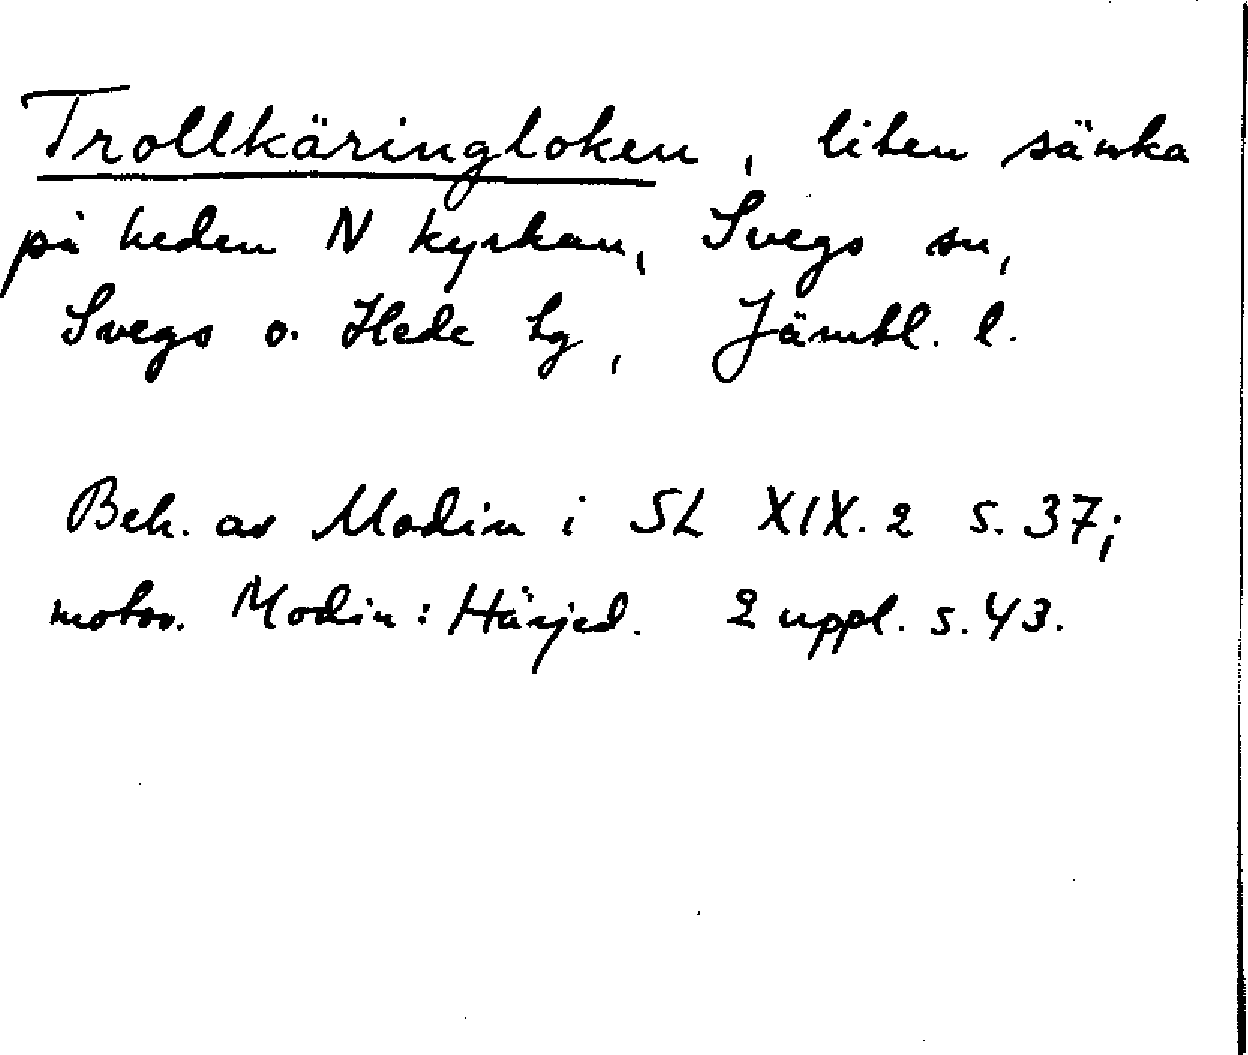 Trollkäringloken, liten sänka
på heden N kyrkan, Svegs sn,
Svegs o. Hede tg, Jämtl. l.
Beh. av Modin i SL XIX. 2 s. 37;
motsv. Modin: Härjed. 2 uppl. s. 43.